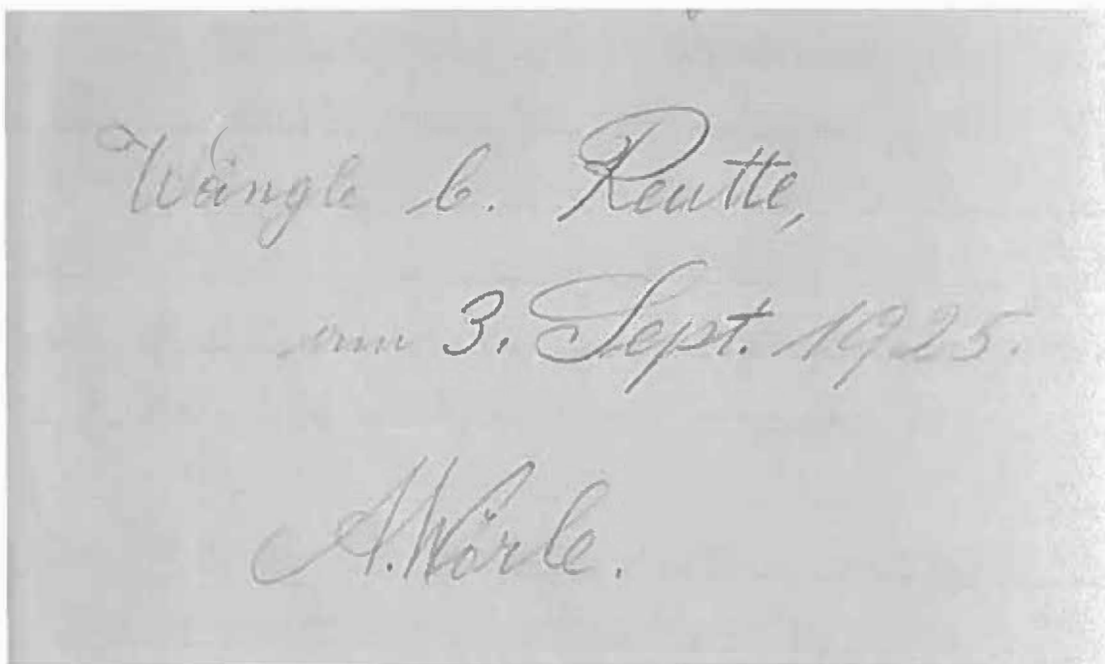 Wängle b. Reutte,
am 3. Sept. 1925.
A. Wörle.